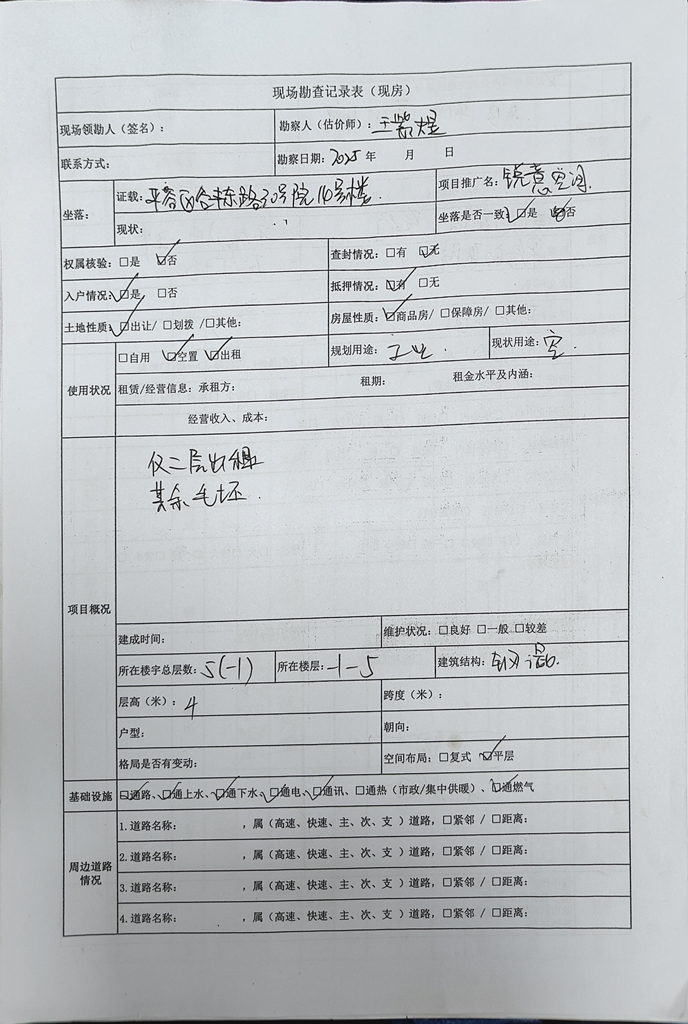 现场勘查记录表（现房）
现场领勘人（签名）： 勘察人（估价师）：王 煜
联系方式： 勘察日期：2025 年 月 日
坐落： 证载：平谷区谷丰东路30号院 号楼. 项目推广名：锐意空间.
现状： 坐落是否一致：☑是 □否
权属核验：□是 ☑否 查封情况：□有 ☑无
入户情况：☑是 □否 抵押情况：☑有 □无
土地性质：☑出让/ □划拨 /□其他： 房屋性质：☑商品房/ □保障房/ □其他：
使用状况 □自用 ☑空置 ☑出租 规划用途：工业. 现状用途：空.
租赁/经营信息：承租方： 租期： 租金水平及内涵：
经营收入、成本：
仅二层出租
其余毛坯.
项目概况
建成时间： 维护状况：□良好 □一般 □较差
所在楼宇总层数：5(-1) 所在楼层：-1-5 建筑结构：钢混.
层高（米）：4 跨度（米）：
户型： 朝向：
格局是否有变动： 空间布局：□复式 ☑平层
基础设施 ☑通路、☑通上水、☑通下水、☑通电、☑通讯、□通热（市政/集中供暖）、☑通燃气
周边道路情况
1.道路名称： ，属（高速、快速、主、次、支 ）道路，□紧邻 / □距离：
2.道路名称： ，属（高速、快速、主、次、支 ）道路，□紧邻 / □距离：
3.道路名称： ，属（高速、快速、主、次、支 ）道路，□紧邻 / □距离：
4.道路名称： ，属（高速、快速、主、次、支 ）道路，□紧邻 / □距离：